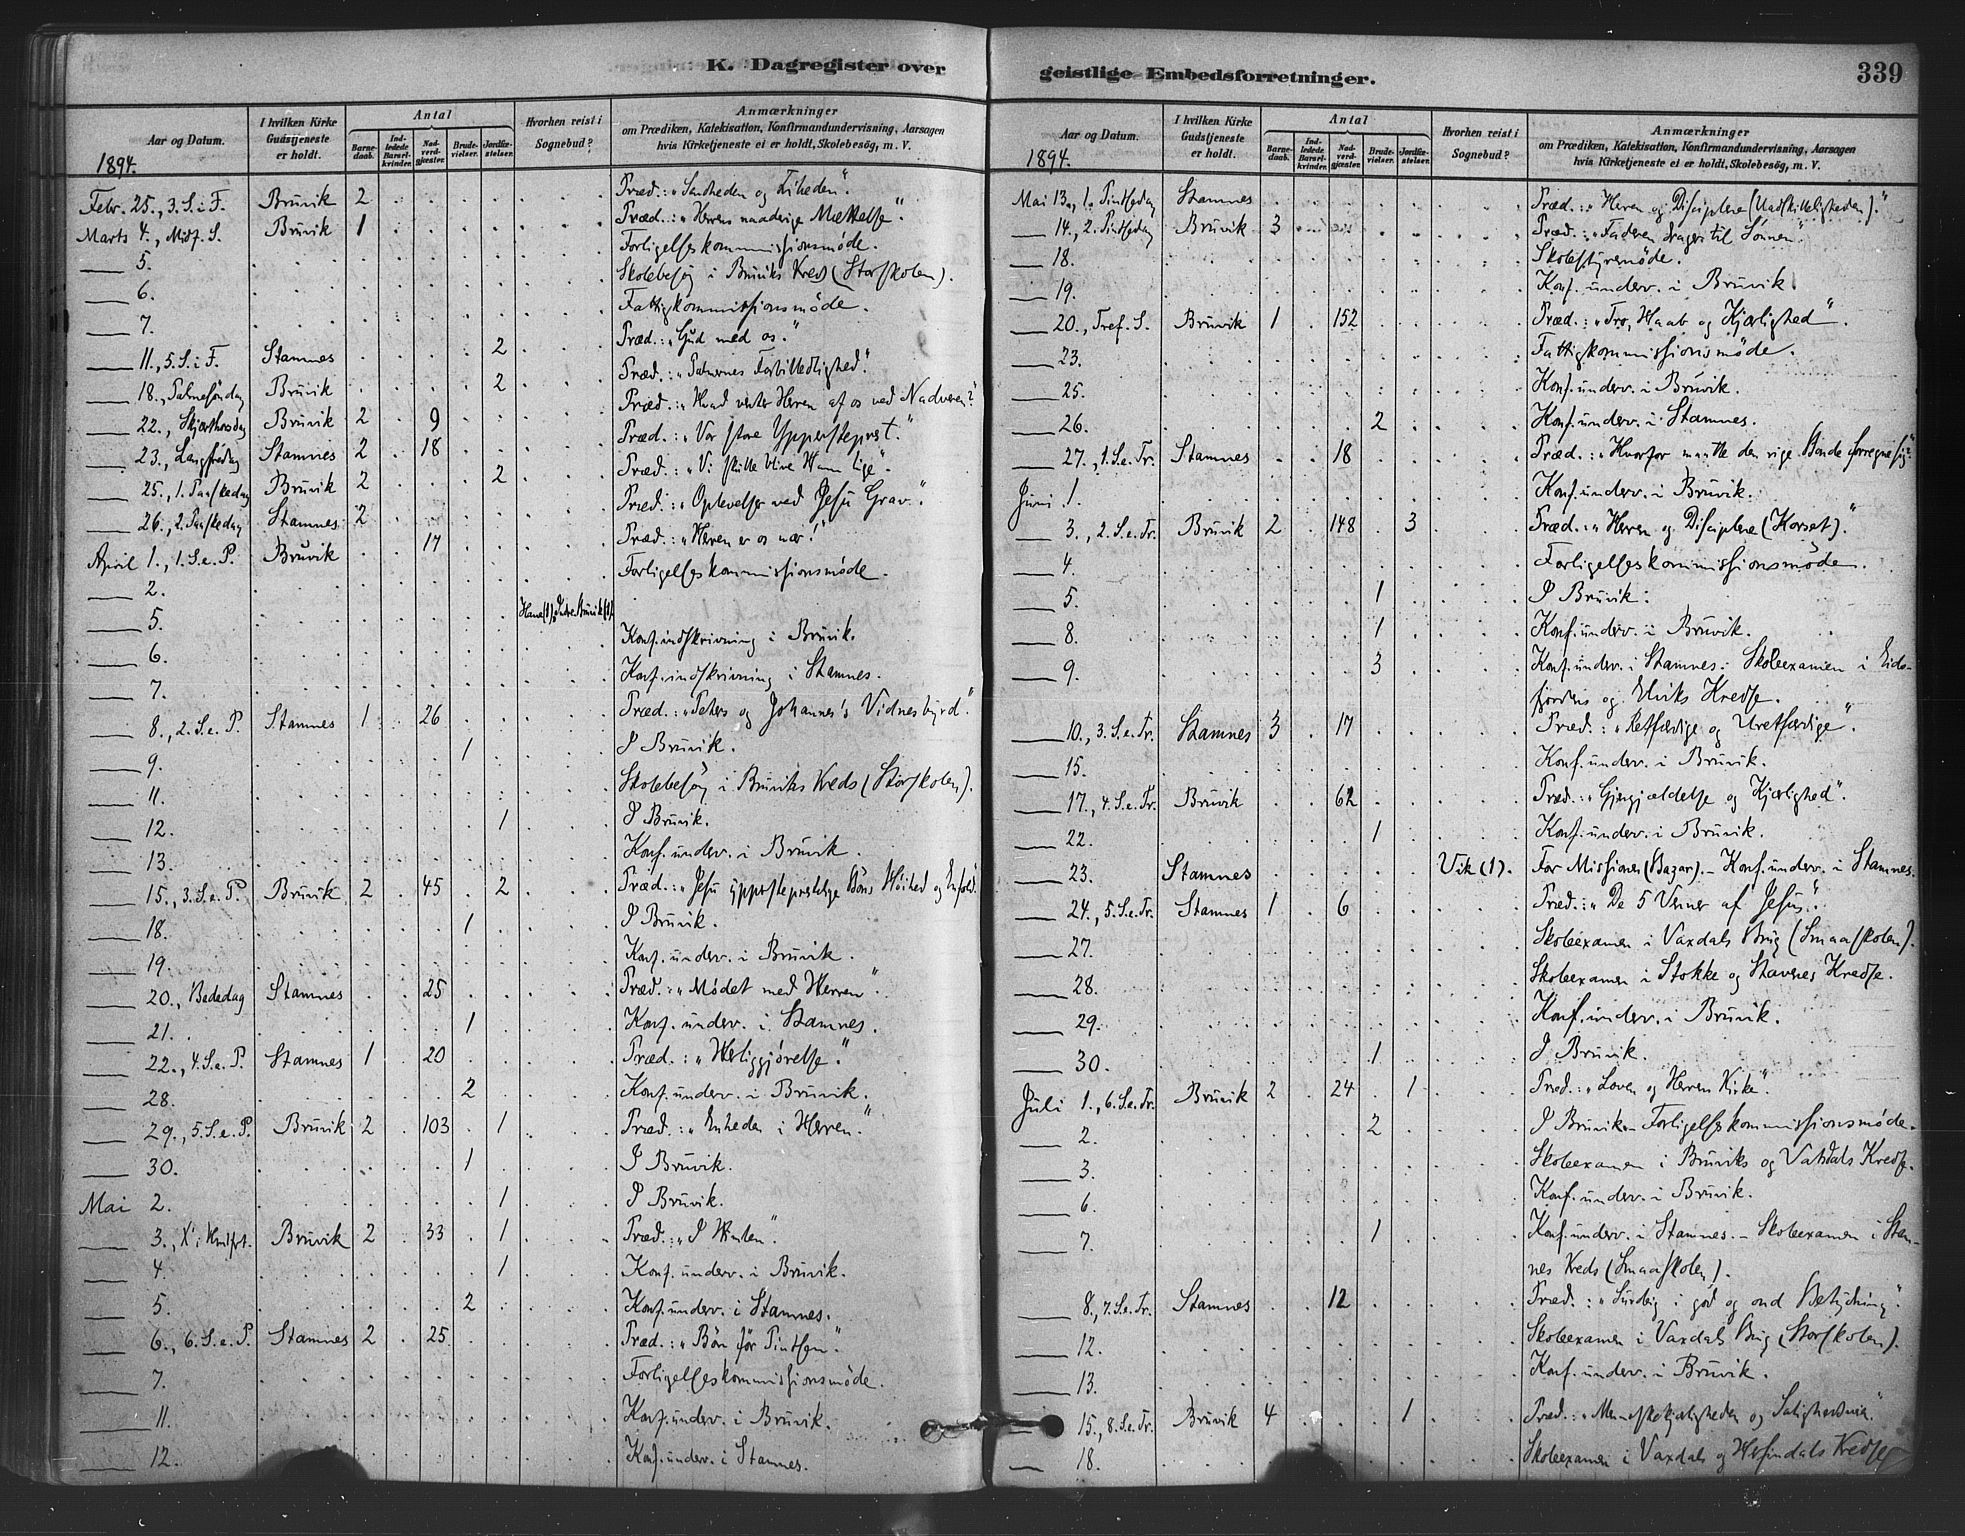 K. Dagregister over
Aar og Datum.
I hvilken Kirke Gudstjeneste er holdt.
Antal
Barne-daab.
Ind-ledede Barsel-kvinder.
Nad-verd-gjæster.
Brude-vielser.
Jordfæ-stelser.
Hvorhen reist i Sognebud?
Anmærkninger
om Prædiken, Katekisation, Konfirmandundervisning, Aarsagen
hvis Kirketjeneste ei er holdt, Skolebesøg, m. V.
1894.
Febr. 25., 3. S. i F. Bruvik 2 Præd.: „Sandheden og Friheden“.
Marts 4., Midf. S. Bruvik 1 Præd.: „Herrens naaderige Mættelse“.
5. Forligelseskommissionsmøde.
6. Skolebesøg i Bruviks Kreds (Storskolen).
7. Fattigkommissionsmøde.
11., 5. S. i F. Stamnes 2 Præd.: „Gud med os“.
18., Palmesøndag Bruvik 2 Præd.: „Palmernes Forbilledlighed“.
22., Skjærthorsdag Bruvik 2 9 Præd.: „Hvad venter Herren af os ved Nadveren?“
23., Langfredag Stamnes 2 18 Præd.: „Vor store Ypperstepræst“.
25., 1. Paaskedag Bruvik 2 2 Præd.: „Vi skulle blive Ham lige“.
26., 2. Paaskedag Stamnes 2 Præd.: „Oplevelser ved Jesu Grav“.
April 1., 1. S. e. P. Bruvik 17 Præd.: „Herren er os nær!“
2. Forligelseskommissionsmøde.
5. Bruvik (1).
6. Konf. indskrivning i Bruvik.
7. Konf. indskrivning i Stamnes.
8., 2. S. e. P. Stamnes 1 26 Præd.: „Peters og Johannes's Vidnesbyrd“.
9. 1 I Bruvik.
11. Skolebesøg i Bruviks Kreds (Storskolen).
12. 1 I Bruvik.
13. Konf. underv. i Bruvik.
15., 3. S. e. P. Bruvik 2 45 2 Præd.: „Jesu ypperstepræstelige Bøns Høihed og Enfold“.
18. 1 I Bruvik.
19. Konf. underv. i Bruvik.
20., Bededag Stamnes 25 Præd.: „Mødet med Herren“.
21. 1 Konf. underv. i Stamnes.
22., 4. S. e. P. Stamnes 1 20 Præd.: „Helliggjørelse“.
28. 2 Konf. underv. i Bruvik.
29., 5. S. e. P. Bruvik 2 103 1 Præd.: „Enheden i Herren“.
30. 1 I Bruvik.
Mai 2. 1 I Bruvik.
3., Xi Hmlfrt. Bruvik 2 33 1 Præd.: „I Himlen“.
4. 1 Konf. underv. i Bruvik.
5. 2 Konf. underv. i Stamnes.
6., 6. S. e. P. Stamnes 2 25 Præd.: „Bøn før Pintsen“.
7. Forligelseskommissionsmøde.
11. Konf. underv. i Bruvik.
12. Konf. underv. i Stamnes.
geistlige Embedsforretninger.
339
Aar og Datum.
I hvilken Kirke Gudstjeneste er holdt.
Antal
Barne-daab.
Ind-ledede Barsel-kvinder.
Nad-verd-gjæster.
Brude-vielser.
Jordfæ-stelser.
Hvorhen reist i Sognebud?
Anmærkninger
om Prædiken, Katekisation, Konfirmandundervisning, Aarsagen
hvis Kirketjeneste ei er holdt, Skolebesøg, m. V.
1894.
Mai 13., 1. Pintsedag Stamnes Præd.: „Herren og Disciplene (Uadskilleligheden).“
14., 2. Pintsedag Bruvik 3 Præd.: „Faderen drager til Sønnen“.
18. Skolestyremøde.
19. Konf. underv. i Bruvik.
20., Tref. S. Bruvik 1 152 Præd.: „Tro, Haab og Kjærlighed“.
23. Fattigkommissionsmøde.
25. Konf. underv. i Bruvik.
26. 2 Konf. underv. i Stamnes.
27., 1. S. e. Tr. Stamnes 18 Præd.: „Hvorfor maatte den rige Bonde forregne sig?“
Juni 1. Konf. underv. i Bruvik.
3., 2. S. e. Tr. Bruvik 2 148 3 Præd.: „Herren og Disciplene (Korset).“
4. Forligelseskommissionsmøde.
5. 1 I Bruvik.
8. 1 Konf. underv. i Bruvik.
9. 3 Konf. underv. i Stamnes. Skoleexamen i Eids-
fjordens og Elviks Kredse.
10., 3. S. e. Tr. Stamnes 3 17 Præd.: „Retfærdige og Uretfærdige“.
15. Konf. underv. i Bruvik.
17., 4. S. e. Tr. Bruvik 62 Præd.: „Gjengjældelse og Kjærlighed“.
22. 1 Konf. underv. i Bruvik.
23. Stamnes Vik (1). For Missionen (Bazar). – Konf. underv. i Stamnes.
24., 5. S. e. Tr. Stamnes 1 6 Præd.: „De 5 Venner af Jesus“.
27. Skoleexamen i Vaxdals Brug (Smaaskolen).
28. Skoleexamen i Stokke og Stavenes Kredse.
29. Konf. underv. i Bruvik.
30. 1 I Bruvik.
Juli 1., 6. S. e. Tr. Bruvik 2 24 1 Præd.: „Loven og Herrens Kirke“.
2. 2 I Bruvik – Forligelseskommissionsmøde.
3. Skoleexamen i Bruviks og Vaxdals Kredse.
6. Konf. underv. i Bruvik.
7. 1 Konf. underv. i Stamnes. – Skoleexamen i Stam-
nes Kreds (Smaaskolen).
8., 7. S. e. Tr. Stamnes 12 Præd.: „Surdeig i god og ond Betydning“.
12. Skoleexamen i Vaxdals Brug (Storskolen).
13. Konf. underv. i Bruvik.
15., 8. S. e. Tr. Bruvik 4 1 Præd.: „Menneskekjærligheden og
18. Skoleexamen i Vaxdals og Hesjedals Kredse